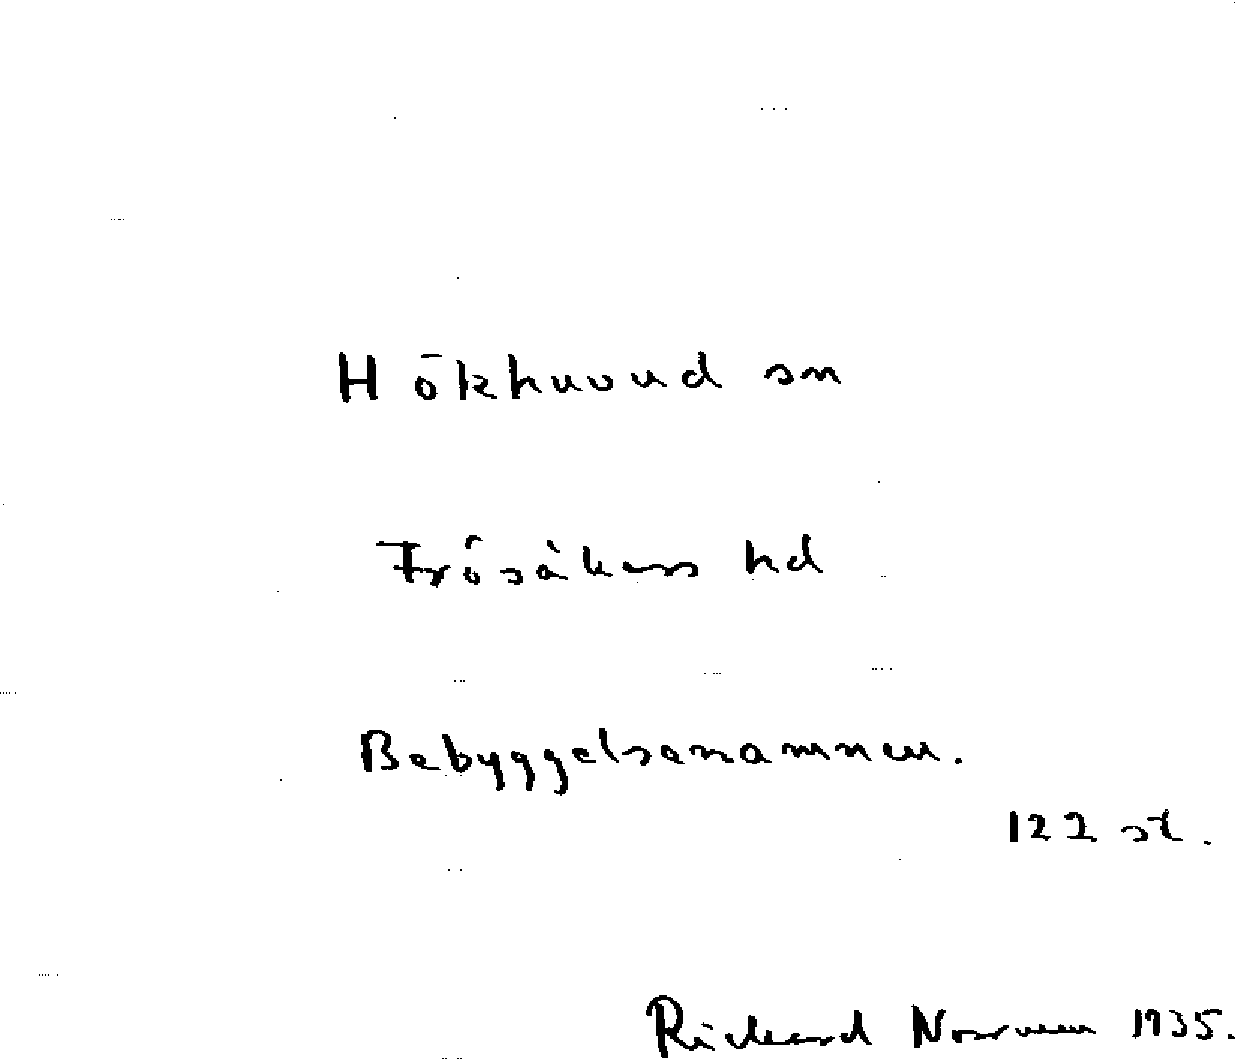 Hökhuvud sn
Frösåkers hd
Bebyggelsenamnen.
122 st.
Rickard Norrman 1935.